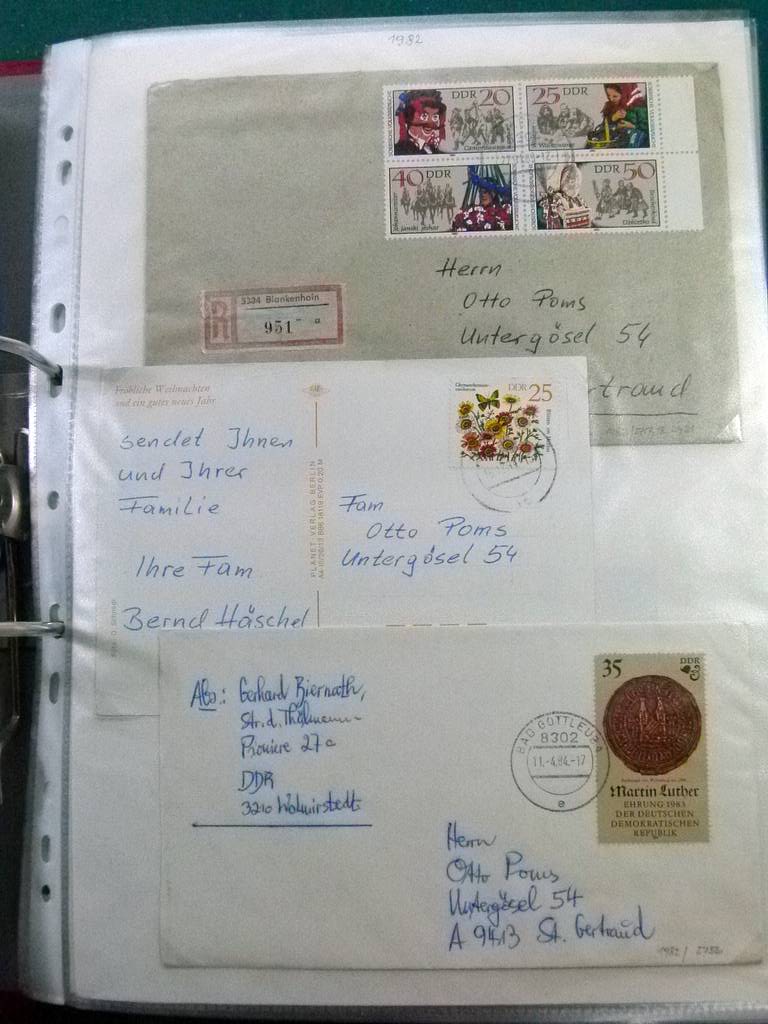 1982
DDR 20
25 DDR
40 DDR
DDR 50
3234 Blankenhain
R
951
a
Herrn
Otto Poms
Untergösel 54
ertraud
Fröhliche Weihnachten
und ein gutes neues Jahr
DDR 25
sendet Ihnen
und Ihrer
Familie
Ihre Fam
Bernd Häschel
PLANET-VERLAG BERLIN
Fam
Otto Poms
Untergösel 54
Abs.: Gerhard Biernath,
Str. d. Thälmann-
Pioniere 27c
DDR
3210 Wolmirstedt
BAD GOTTLEUBA
8302
11.-4.84.-17
e
35 DDR
Martin Luther
EHRUNG 1983
DER DEUTSCHEN
DEMOKRATISCHEN
REPUBLIK
Herrn
Otto Poms
Untergösel 54
A 9413 St. Gertraud